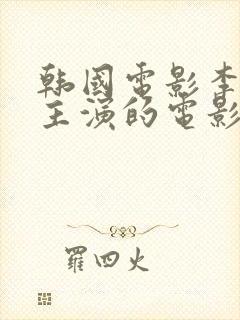 韩國電影李
主演的電影
羅四火